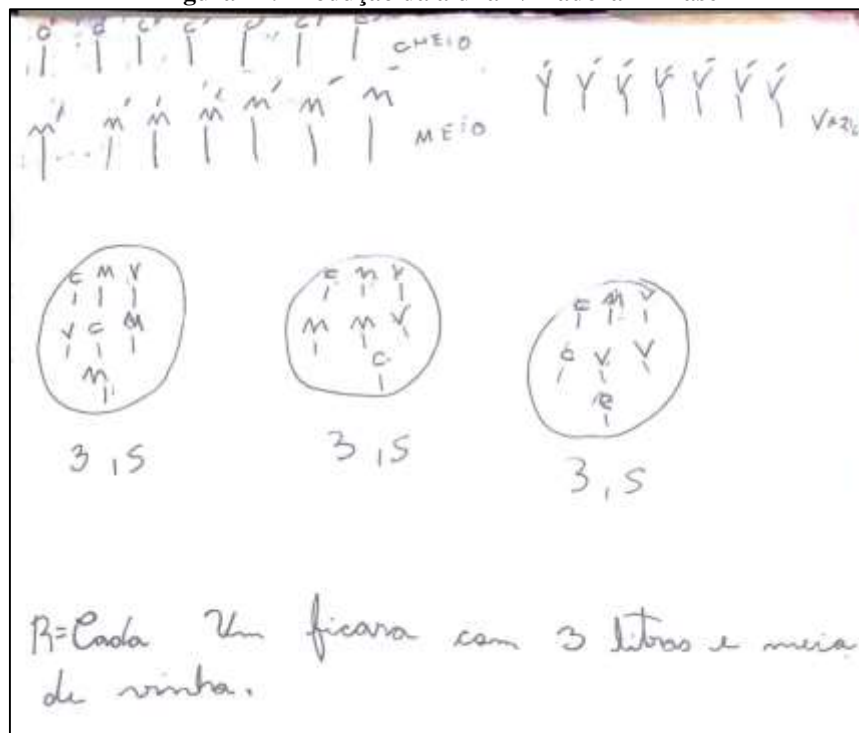 c' c' c' c' c' c' c' CHEIO
m' m' m' m' m' m' m' MEIO
v' v' v' v' v' v' v' VAZIO
C M V
V C M
M
C M V
M M V
C
C M V
C V V
C
3,5
3,5
3,5
R= Cada Um ficara com 3 litros e meia
de vinho.